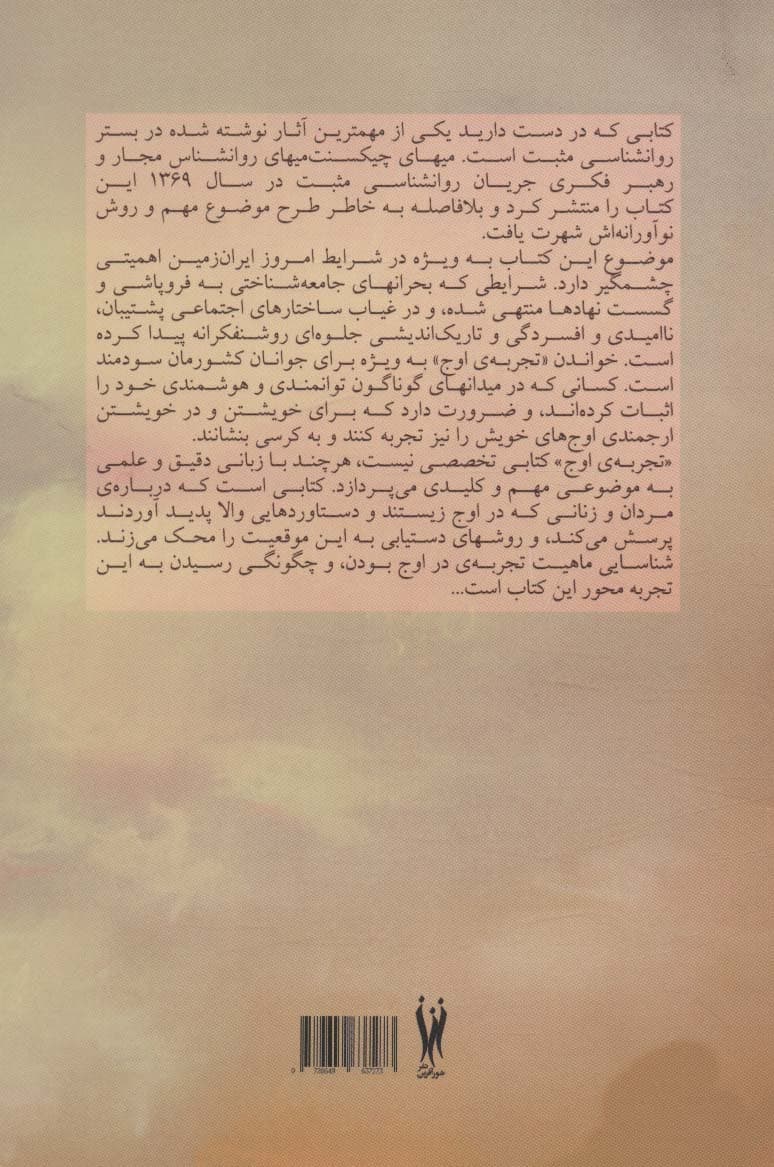 کتابی که در دست دارید یکی از مهمترین آثار نوشته شده در بستر
روانشناسی مثبت است. میهای چیکسنت‌میهای روانشناس مجار و
رهبر فکری جریان روانشناسی مثبت در سال ۱۳۶۹ این
کتاب را منتشر کرد و بلافاصله به خاطر طرح موضوع مهم و روش
نوآورانه‌اش شهرت یافت.
موضوع این کتاب به ویژه در شرایط امروز ایران‌زمین اهمیتی
چشمگیر دارد. شرایطی که بحرانهای جامعه‌شناختی به فروپاشی و
گسست نهادها منتهی شده، و در غیاب ساختارهای اجتماعی پشتیبان،
ناامیدی و افسردگی و تاریک‌اندیشی جلوه‌ای روشنفکرانه پیدا کرده
است. خواندن «تجربه‌ی اوج» به ویژه برای جوانان کشورمان سودمند
است. کسانی که در میدانهای گوناگون توانمندی و هوشمندی خود را
اثبات کرده‌اند، و ضرورت دارد که برای خویشتن و در خویشتن
ارجمندی اوج‌های خویش را نیز تجربه کنند و به کرسی بنشانند.
«تجربه‌ی اوج» کتابی تخصصی نیست، هرچند با زبانی دقیق و علمی
به موضوعی مهم و کلیدی می‌پردازد. کتابی است که درباره‌ی
مردان و زنانی که در اوج زیستند و دستاوردهایی والا پدید آوردند
پرسش می‌کند، و روشهای دستیابی به این موقعیت را محک می‌زند.
شناسایی ماهیت تجربه‌ی در اوج بودن، و چگونگی رسیدن به این
تجربه محور این کتاب است...
نشر
شورآفرین